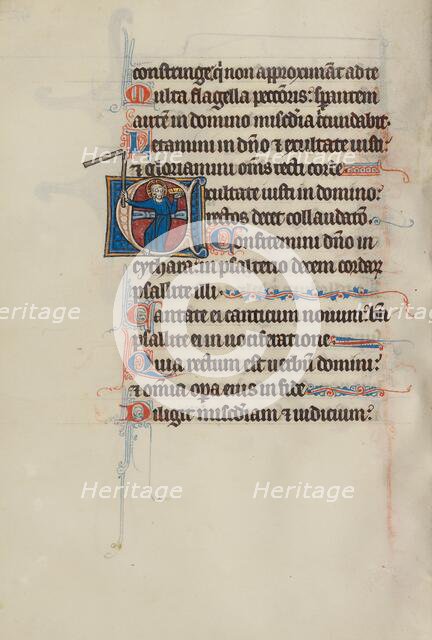 constringe q̇ non approximāt ad te
Multa flagella peccōris: sperantem
autē in domino misc̄dia circūdabit.
Letamini in dn̄o ⁊ exultate iusti:
⁊ gloriamini om̄s recti corde
Exultate iusti in domino:
rectos decet collaudatō.
Confitemini dn̄o in
cythara: in psalterio decem cordar̄
psallite illi
Cantate ei canticum nouum: bn̄
psallite ei in uociferatione
Quia rectum est uerbū domini:
⁊ om̄ia opa eius in fide
Diligit misc̄diam ⁊ iudicium:
Heritage Heritage Heritage
Heritage Heritage Heritage
Heritage Heritage Heritage